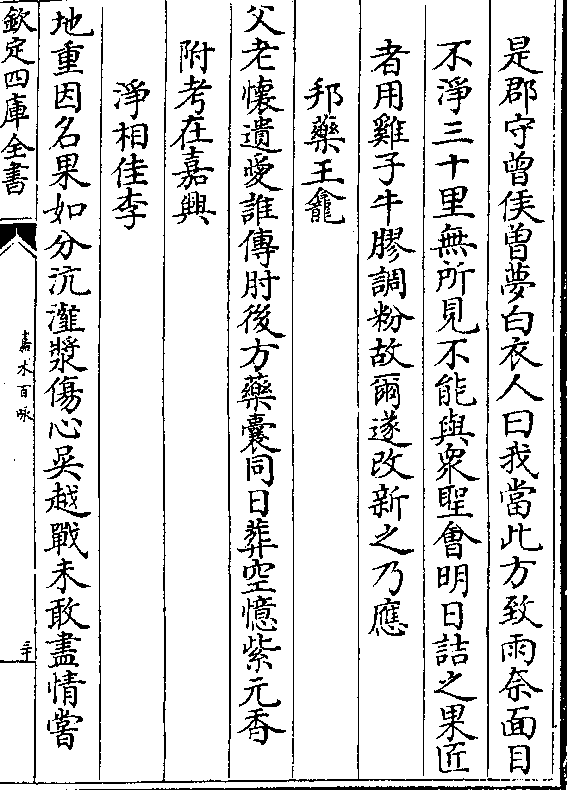 是郡守曾侯曾夢白衣人曰我當此方致雨奈面目
不淨三十里無所見不能與衆聖會明日詰之果匠
者用雞子牛膠調粉故爾遂改新之乃應
邦藥王龕
父老懷遺愛誰傳肘後方藥囊同日葬空憶紫元香
附考在嘉興
淨相佳李
地重因名果如分沆瀣漿傷心吳越戰未敢盡情嘗
欽定四庫全書
嘉禾百咏